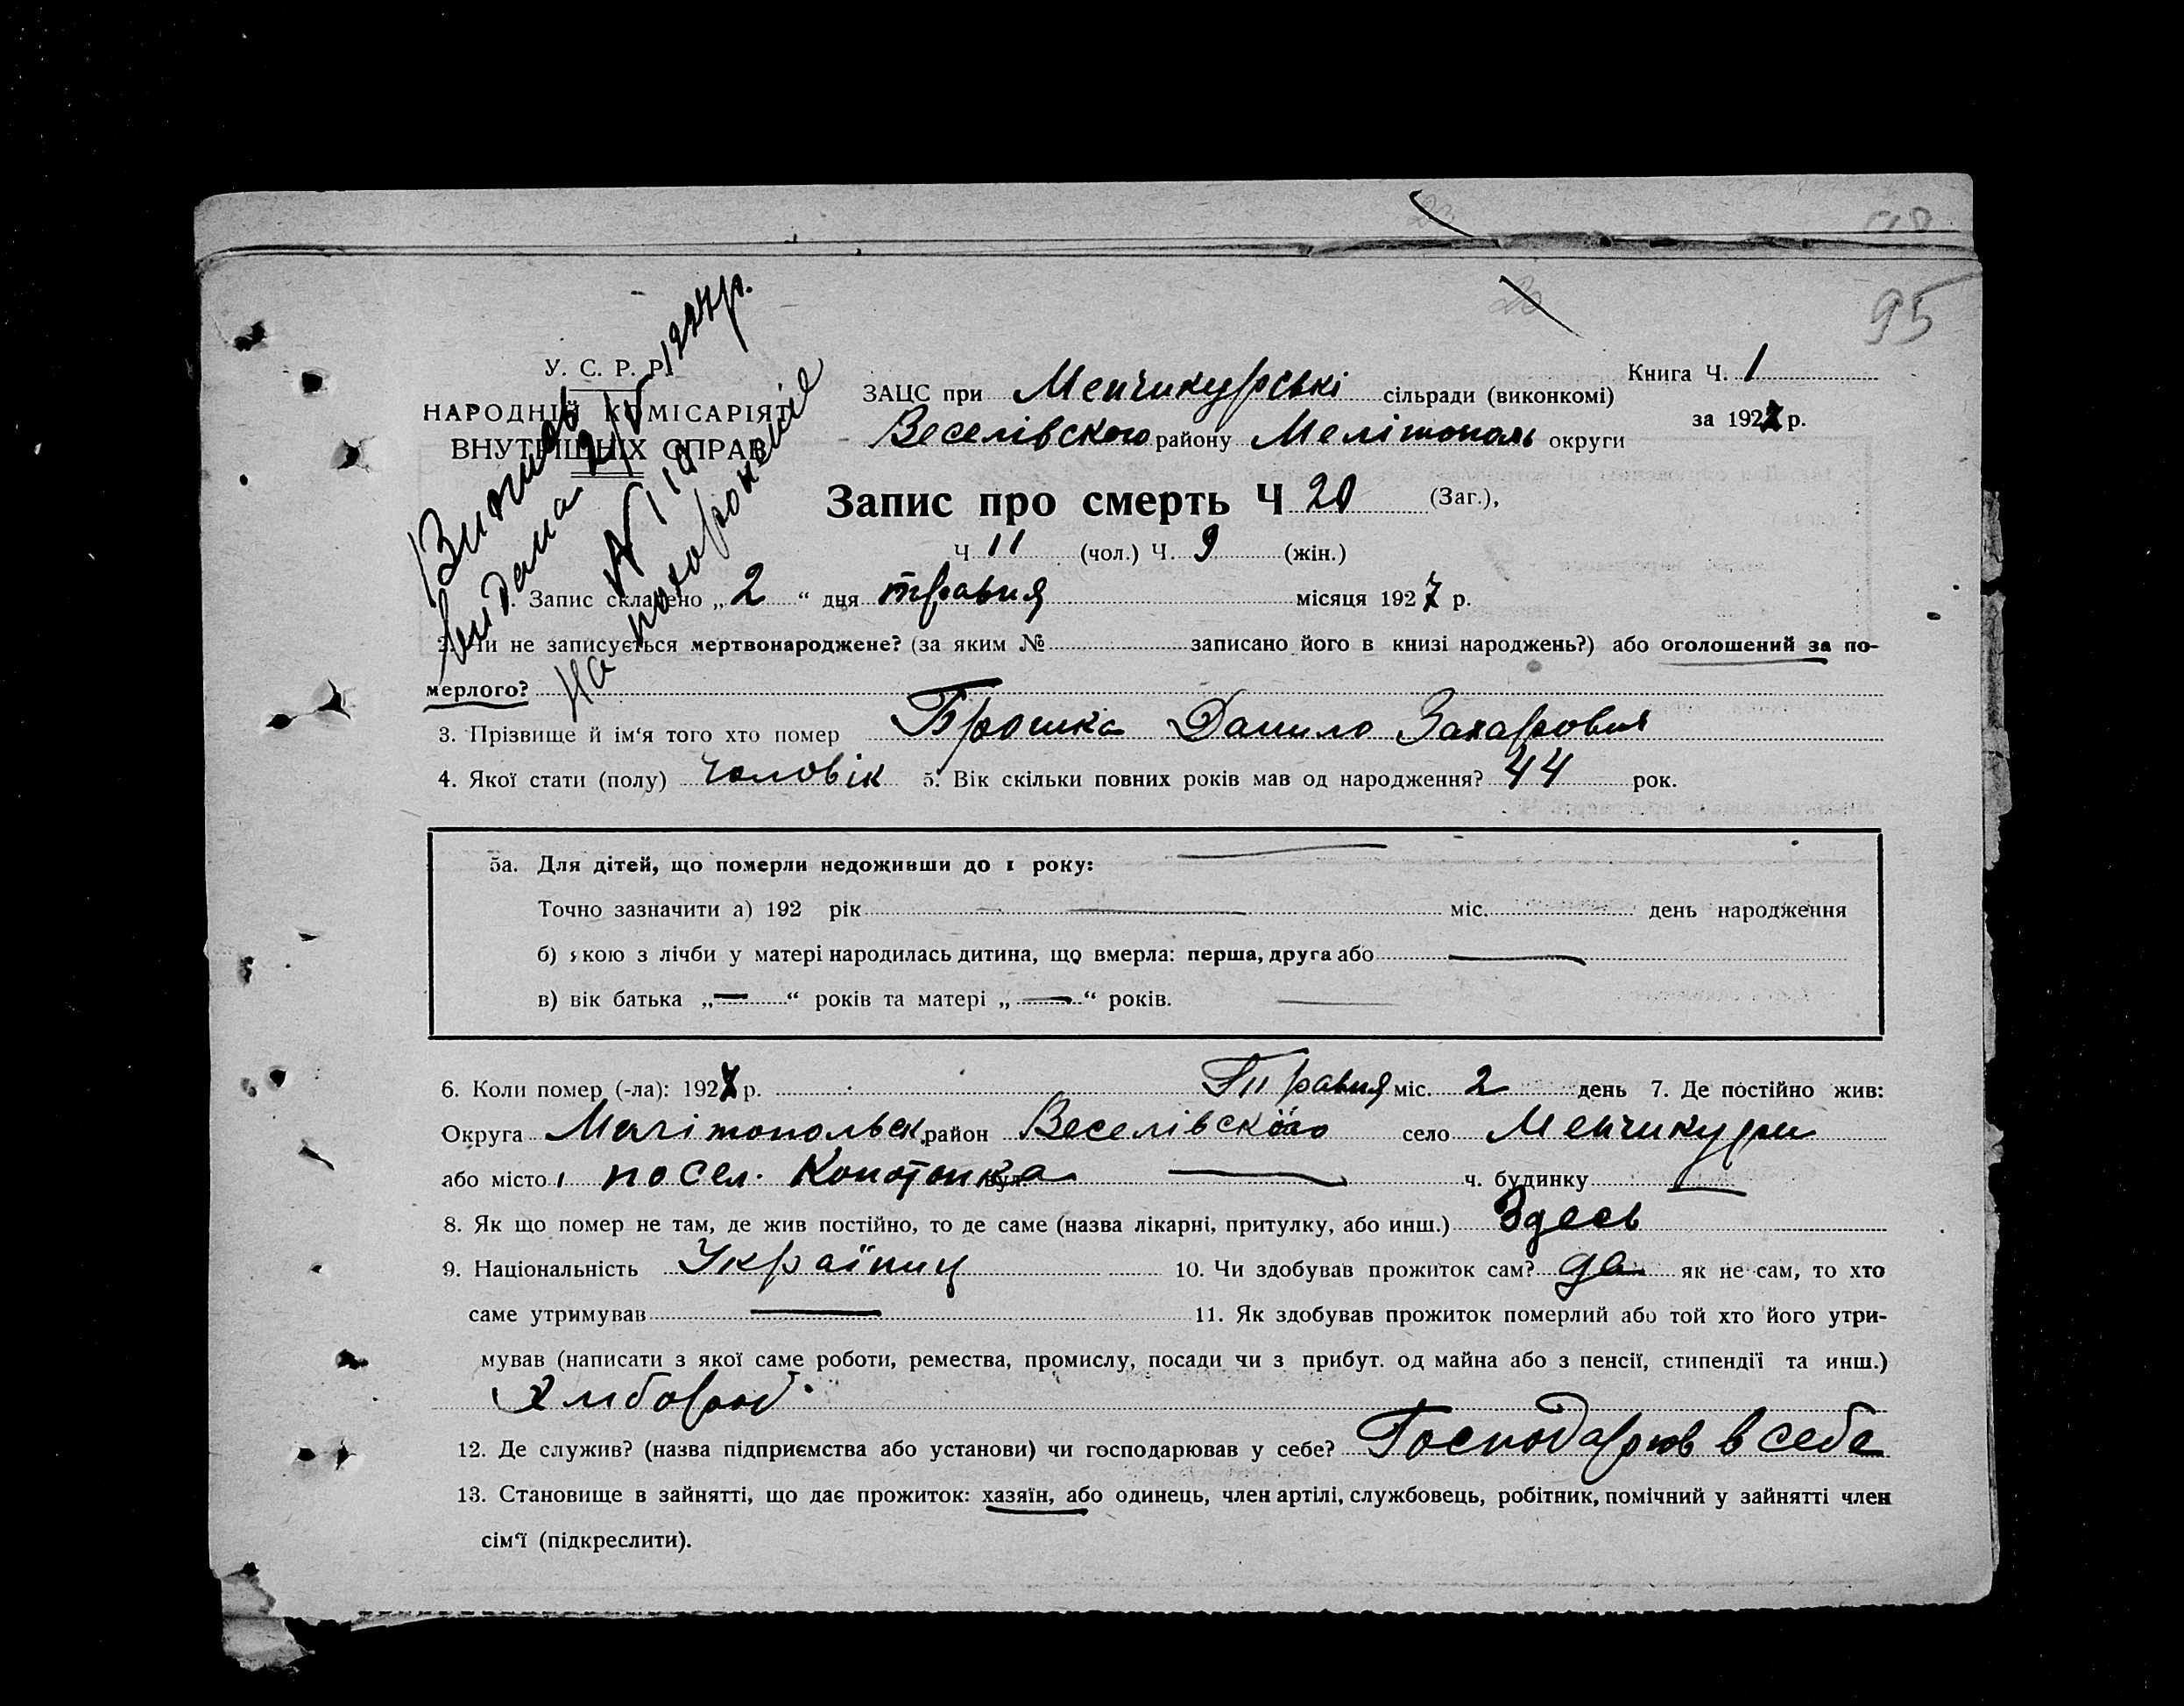 95
У. С. Р. Р.
НАРОДНІЙ КОМІСАРІЯТ
ВНУТРІШНІХ СПРАВ
видана 2/V 1927 р.
на
ЗАЦС при Менчикурські сільради (виконкомі)
Веселівского району Мелітополь округи
Книга Ч. 1
за 1927 р.
Запис про смерть Ч 20 (Заг.),
Ч 11 (чол.) Ч. 9 (жін.)
1. Запис складено „2“ дня травня місяця 1927 р.
2. Чи не записується мертвонароджене? (за яким № записано його в книзі народжень?) або оголошений за по-
мерлого?
3. Прізвище й ім‘я того хто помер Брошка Данило Захарович
4. Якої стати (полу) Чоловік 5. Вік скільки повних років мав од народження? 44 рок.
5а. Для дітей, що померли недоживши до 1 року:
Точно зазначити а) 192 рік — міс. день народження
б) якою з лічби у матері народилась дитина, що вмерла: перша, друга або —
в) вік батька „—“ років та матері „—“ років.
6. Коли помер (-ла): 1927 р. Травня міс. 2 день 7. Де постійно жив:
Округа Мелітопольск район Веселівского село Менчикури
або місто посел. Конотопка — ч. будинку —
8. Як що помер не там, де жив постійно, то де саме (назва лікарні, притулку, або инш.) Здесь
9. Національність Українц 10. Чи здобував прожиток сам? да як не сам, то хто
саме утримував — 11. Як здобував прожиток померлий або той хто його утри-
мував (написати з якої саме роботи, ремества, промислу, посади чи з прибут. од майна або з пенсії, стипендії та инш.)
Хлібороб
12. Де служив? (назва підприємства або установи) чи господарював у себе? Господарюв в себе
13. Становище в зайнятті, що дає прожиток: хазяїн, або одинець, член артілі, службовець, робітник, помічний у зайнятті член
сім‘ї (підкреслити).